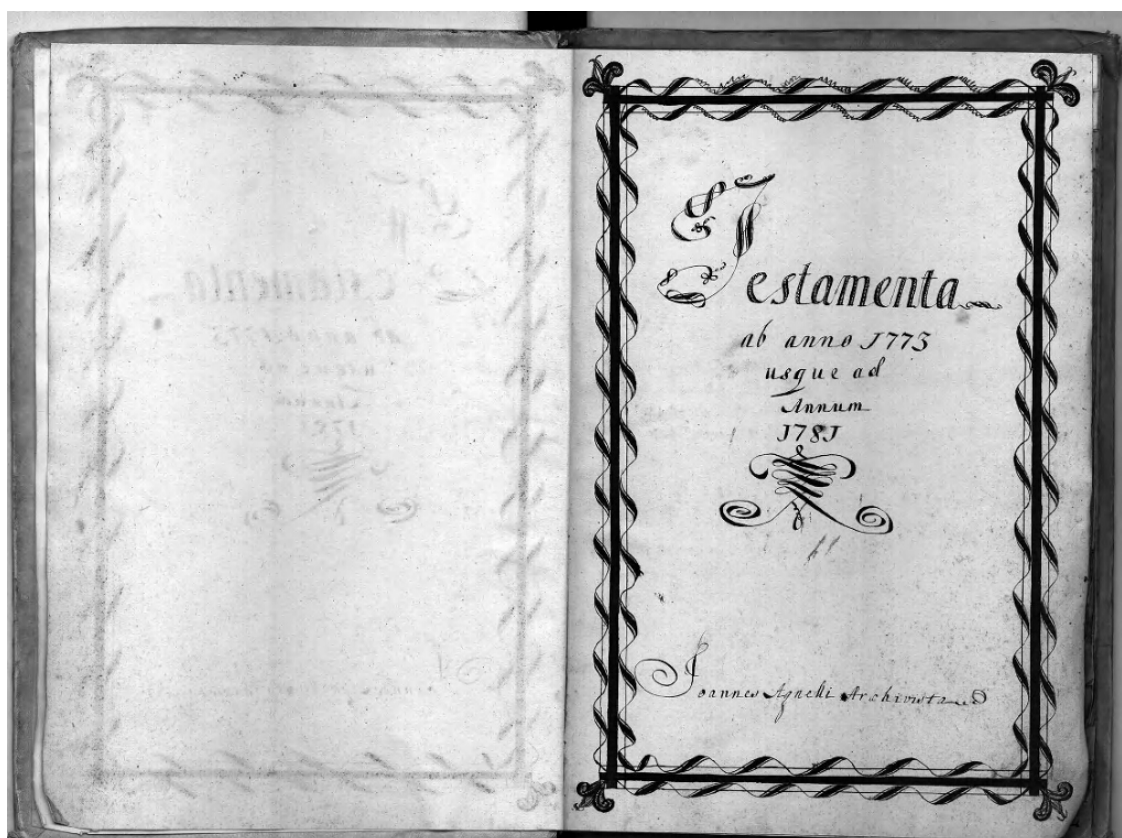 Testamenta
ab anno 1773
usque ad
Annum
1781
Joannes Agnelli Archivista